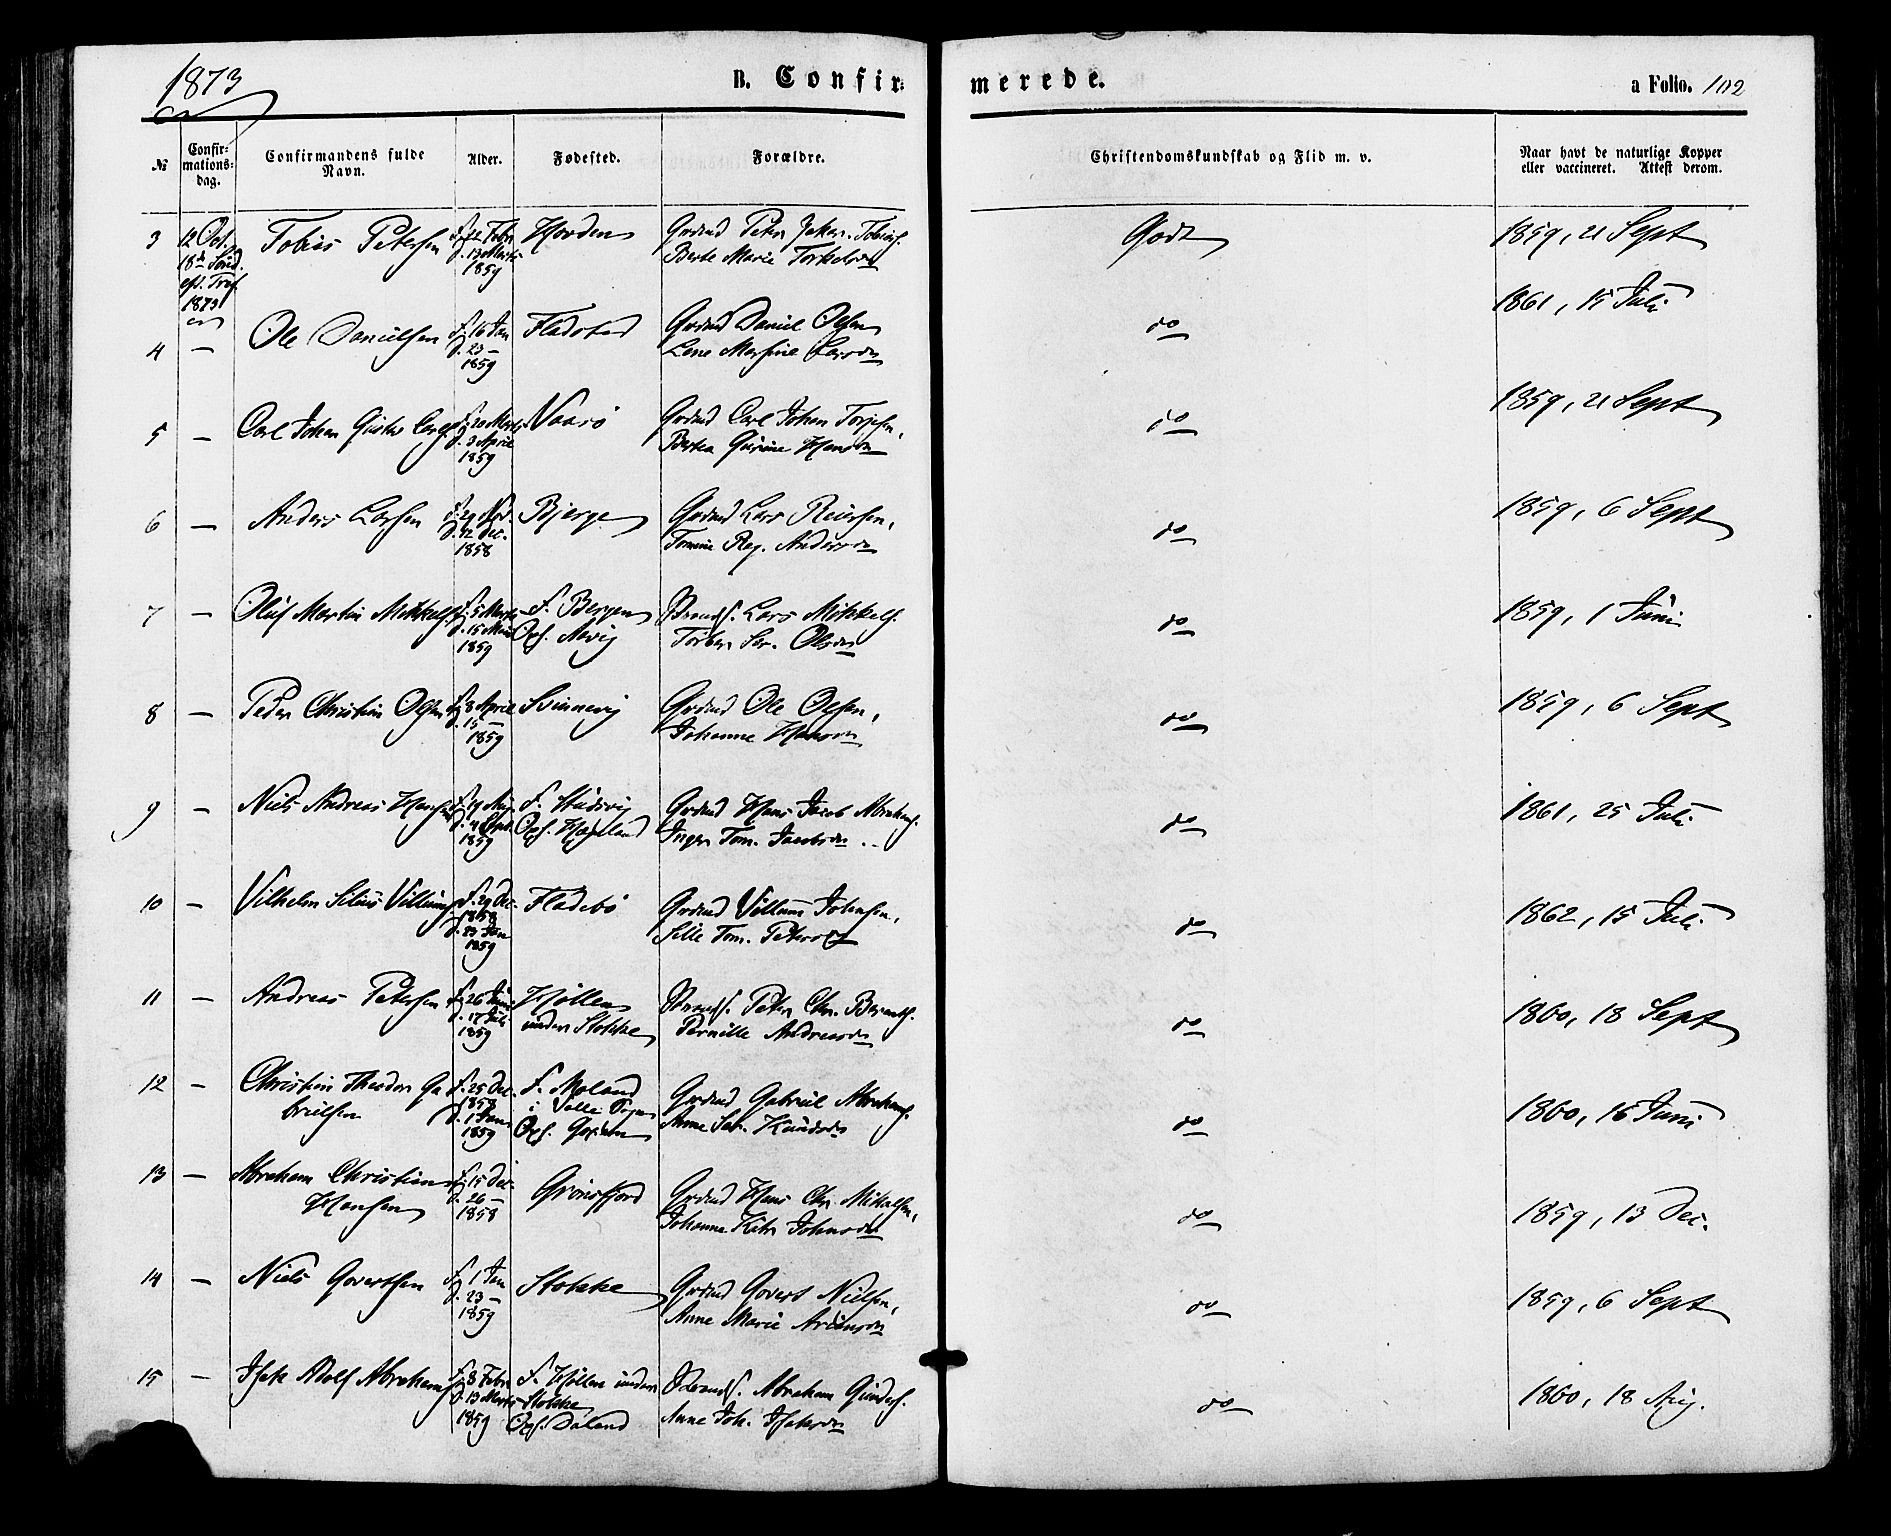 1873
B. Confir-
merede.
a Folio. 102
№
Confir-
mations-
dag.
Confirmandens fulde
Navn.
Alder.
Fødested.
Forældre.
Christendomskundskab og Flid m. v.
Naar havt de naturlige Kopper
eller vaccineret. Attest derom.
3
12 Oct.
18de Sønd.
eft. Tref.
1873
Tobias Petersen
f. 12 Febr
d. 13 Marts
1859
Peter
Berte Marie Torkelsdn
Godt
1859, 21 Sept
4 —
Ole Danielsen
f. 16 Jan
d. 23 —
1859
Fladstad
Grdmd Daniel Olsen
Lene
do
1861, 15 Juli
5 —
Carl Johan Gustav
f. 20 Marts
d. 3 April
1859
Vaarø
Grdmd Carl Johan
Hansdn
do
1859, 21 Sept
6 —
Anders Larsen
f. 29 Nov.
d. 12 Dec.
1858
Bjerge
Grdmd Lars
Tomine Reg. Andersdn
do
1859, 6 Sept
7 —
Oluf Martin Mikkels.
f. 5 Marts
d. 15 Mai
1859
f. Bergen
Opf. Aavig
Lars Mikkels.
Torber Ser. Olsdn
do
1859, 1 Juni
8 —
Peder Christian Olsen
f. 8 April
d. 15 —
1859
Svinnevig
Grdmd Ole Olsen,
Johanne Hansdn
do
1859, 6 Sept
9 —
Niels Andreas Hansen
f. 19 Aug
d. 4 Sept.
1859
f. Studevig
Opf. Hageland
Grdmd Hans Jacob Abrahams.
Inger Tom. Jacobsdn
do
1861, 25 Juli
10 —
Vilhelm Silius Villums.
f. 29 Dec.
1858
d. 23 Jan
1859
Fladebø
Grdmd Villum Johnsen,
Sille Tom. Petersd
do
1862, 15 Juli
11 —
Andreas Petersen
f. 26 Juni
d. 17 Juli
1859
Høllen
under Stokke
Peter Chr. Berenths.
Pernille Andreasdn
do
1860, 18 Sept
12 —
Christian Theodor Ga
brielsen
f. 25 Dec.
1858
d. 1 Jan
1859
f. Moland
i Valle Sogn
Opf.
Grdmd Gabriel Abrahams.
Anne Ser. Knudsdn
do
1860, 16 Juni
13 —
Abraham Christian
Hansen
f. 15 Dec.
d. 26 —
1858
Grønsfjord
Grdmd Hans Chr. Mikalsen,
Johanne Katr. Johnsdn
do
1859, 13 Dec.
14 —
Niels Govertsen
f. 1 Jan
d. 23 —
1859
Stokke
Grdmd Govert Nielsen,
Anne Marie
do
1859, 6 Sept
15 —
Isak Adolf Abrahams.
f. 8 Febr
d. 13 Marts
1859
f. Høllen under
Stokke
Opf. Døland
Abraham Gunders.
Anne Joh. Isaksdn
do
1860, 18 Aug.